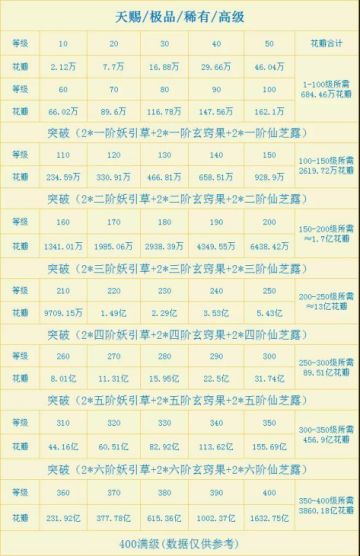 天赐/极品/稀有/高级
等级 10 20 30 40 50 花瓣合计
花瓣 2.12万 7.7万 16.88万 29.66万 46.04万 1-100级所需
等级 60 70 80 90 100 684.46万花瓣
花瓣 66.02万 89.6万 116.78万 147.56万 162.1万
突破(2*一阶妖引草+2*一阶玄窍果+2*一阶仙芝露)
等级 110 120 130 140 150 100-150级所需
花瓣 234.59万 330.91万 466.81万 658.51万 928.9万 2619.72万花瓣
突破(2*二阶妖引草+2*二阶玄窍果+2*二阶仙芝露)
等级 160 170 180 190 200 150-200级所需
花瓣 1341.01万 1985.06万 2938.39万 4349.55万 6438.42万 ≈1.7亿花瓣
突破(2*三阶妖引草+2*三阶玄窍果+2*三阶仙芝露)
等级 210 220 230 240 250 200-250级所需
花瓣 9709.15万 1.49亿 2.29亿 3.53亿 5.43亿 ≈13亿花瓣
突破(2*四阶妖引草+2*四阶玄窍果+2*四阶仙芝露)
等级 260 270 280 290 300 250-300级所需
花瓣 8.01亿 11.31亿 15.95亿 22.5亿 31.74亿 89.51亿花瓣
突破(2*五阶妖引草+2*五阶玄窍果+2*五阶仙芝露)
等级 310 320 330 340 350 300-350级所需
花瓣 44.16亿 60.51亿 82.92亿 113.62亿 155.69亿 456.9亿花瓣
突破(2*六阶妖引草+2*六阶玄窍果+2*六阶仙芝露)
等级 360 370 380 390 400 350-400级所需
花瓣 231.92亿 377.78亿 615.36亿 1002.37亿 1632.75亿 3860.18亿花瓣
400满级(数据仅供参考)